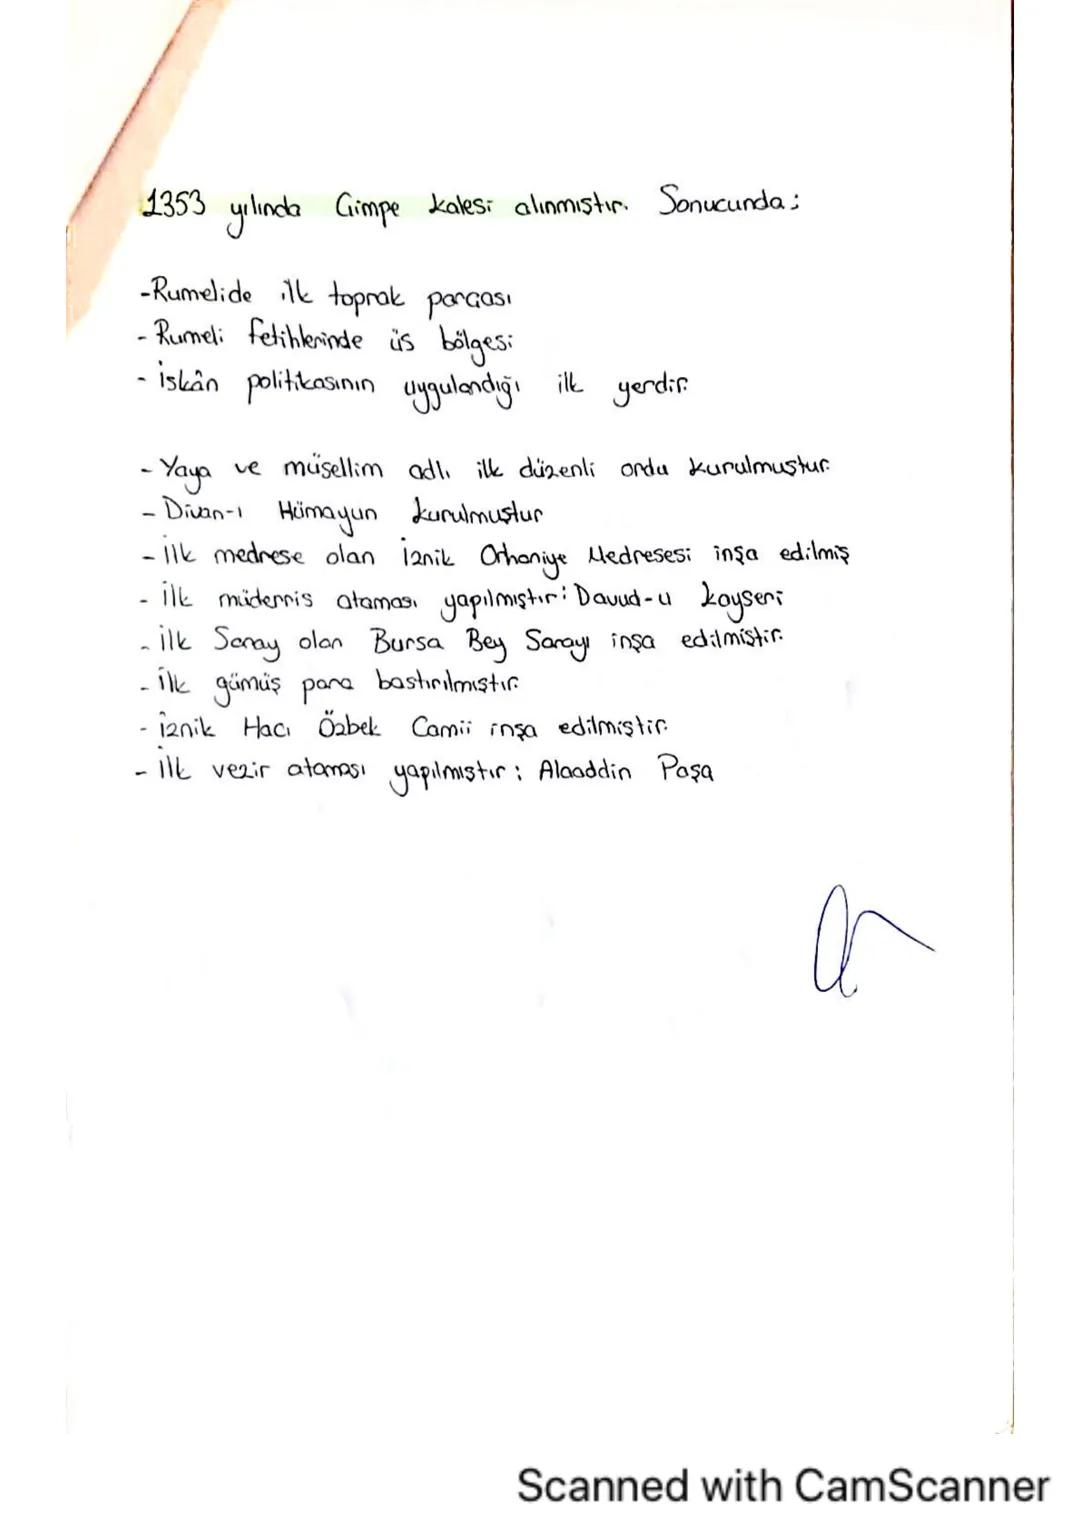 1353 yılında Çimpe kalesi alınmıştır. Sonucunda:
-Rumelide ilk toprak parçası
- Rumeli fetihlerinde üs bölgesi
- iskân politikasının uygulandığı ilk yerdir.
- Yaya ve müsellim adlı ilk düzenli ordu kurulmuştur.
- Divan-ı Hümayun kurulmuştur
- İlk medrese olan İznik Orhaniye Medresesi inşa edilmiş
- ilk müderris ataması yapılmıştır: Davud-u kayseri
- ilk Saray olan Bursa Bey Sarayı inşa edilmiştir.
- ilk gümüş para bastırılmıştır.
- iznik Hacı Özbek Camii inşa edilmiştir.
- ilk vezir ataması yapılmıştır: Alaaddin Paşa
Scanned with CamScanner